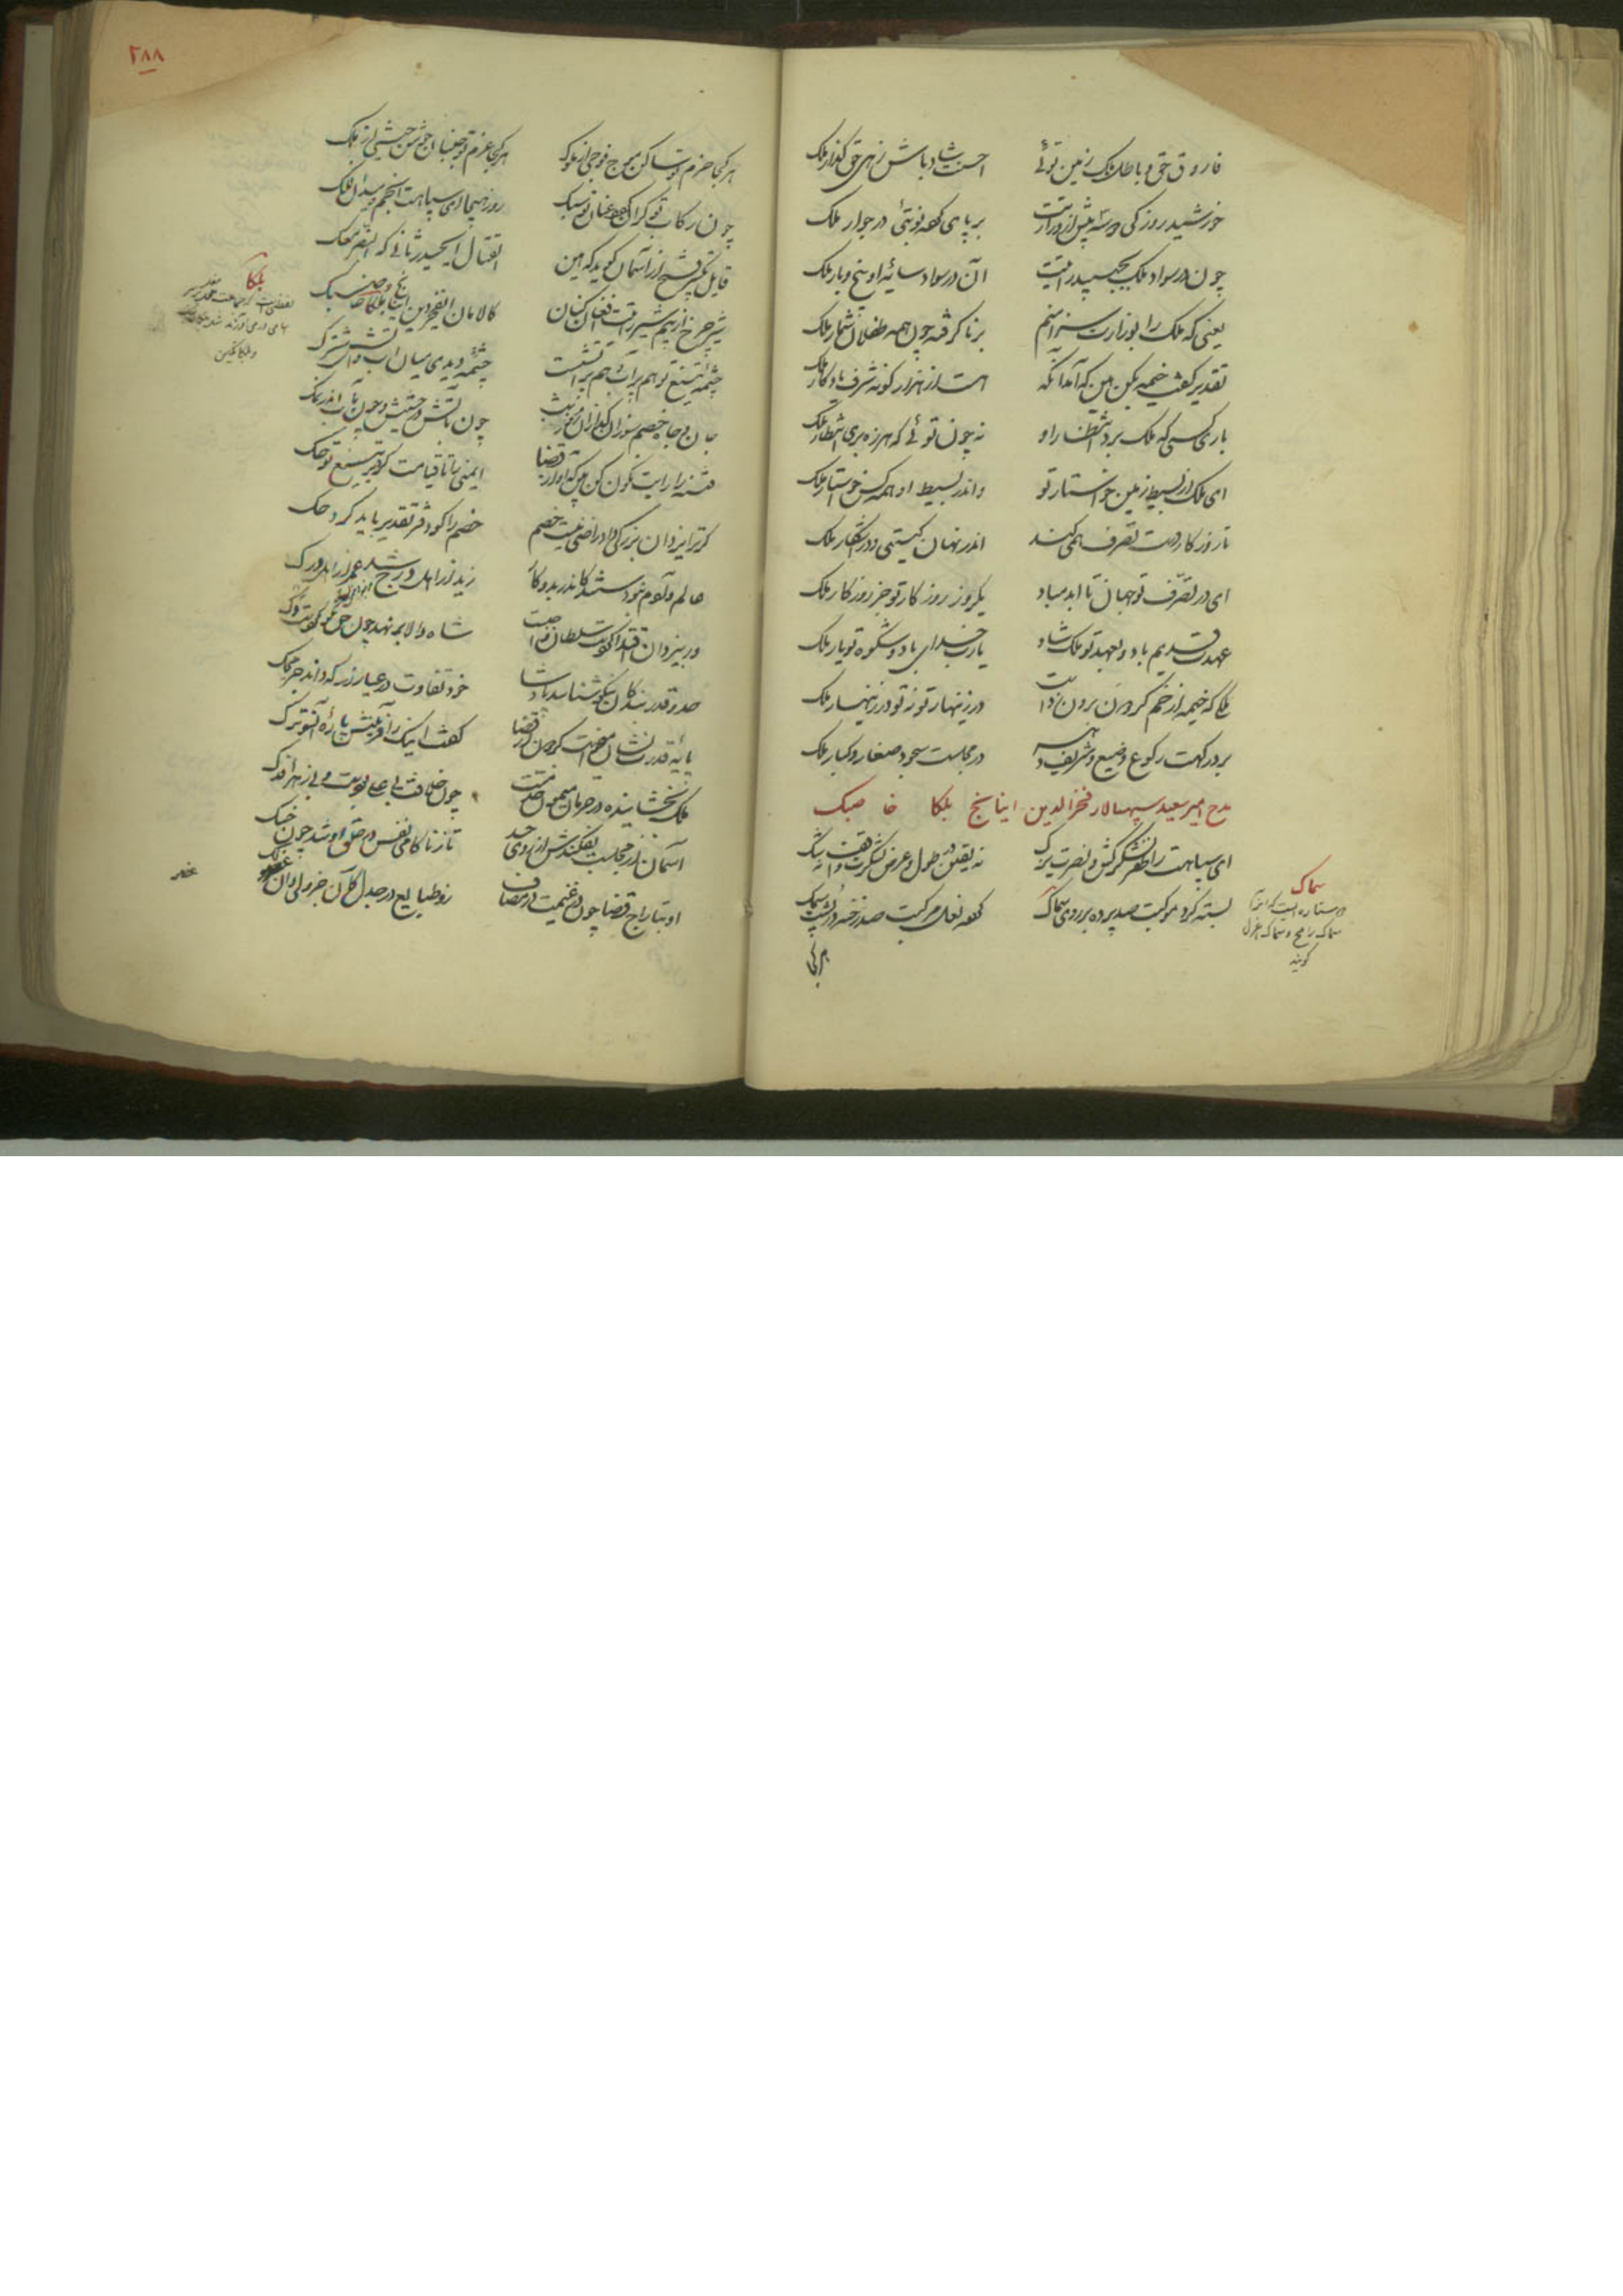 فاروق حق و باطل ملک زمین توئی
احسنت شاد باش زهی حق گذار ملک
خورشید روز کی دو سه پیش از وزارتت
بر پای کعه نوبتی در جوار ملک
چون در سواد ملک بجنبید رایتت
آن در سواد سایه او بیخ و بار ملک
یعنی که ملک را بوزارت سزا منم
برنا گرفته چون همه طفلان شمار ملک
تقدیر گفت خیمه بکن هین که آمد آنکه
هست از هزار گونه شرف یادگار ملک
باری کسی که ملک برد انتظار او
نه چون توئی که هرزه بری انتظار ملک
ای ملک در بسیط زمین خواستار تو
و اندر بسیط او همه کس خواستار ملک
تا روزگار دست تصرف همی کند
اندر نهان گیتی و در آشکار ملک
ای در تصرف تو جهان تا ابد مباد
یکروز روزگار تو جز روزگار ملک
عهدت قدیم باد و بعهد تو ملک شاد
یارت خدای باد و شکوه تو یار ملک
ملکی که خیمه از خم گردون برون زدست
در زینهار تو نه تو در زینهار ملک
بر درگهت رکوع وضیع و شریف دهر
در مجلست سجود صغار و کبار ملک
مدح امیر سعید سپهسالار فخرالدین اینانج بلکا خاصبک
ای سپاهت را ظفر لشکرکش و نصرت یزک
نه یقین در طول و عرض لشکرت واقف نه شک
بسته گرد موکبت صد پرده بر روی سماک
کعه نعل مرکبت صد رخنه در پشت سمک
سماک
دو ستاره است که آنرا
سماک رامح و سماک اعزل
گویند
هر کجا
۲۸۸
هر کجا حزم تو ساکن موج فوجی از ملوک
هر کجا عزم تو جنبان جوش جیشی از ملک
چون رکاب تو گران گردد عنان تو سبک
روز هیجا ای سپاهت انجم و میدان فلک
قایل تکبیر فتح از آسمان گوید که هین
القتال ای حیدر ثانی که النصر معک
شیر چرخ از بیم شیر رایتت افغان کنان
کالامان ای فخر دین اینانج بلکا خاصبک
چشمه تیغ تو هم پر آب و هم پر آتشست
چشمه دیدی میان آب و آتش مشترک
جان و جای خصم سوزان و گدازان روز و شب
چون بآتش در حشیش و چون بآب اندر نمک
فتنه را رایت نگون کن هین که اقرار قضا
ایمنی را تا قیامت کرد بر تیغ تو چک
گر ترا یزدان بزرگی داد راضی نیست خصم
خصم را گو دفتر تقدیر باید کرد حک
عالم و آدم نبودستند کاندر بدو کار
زید از اهل درج شد عمرو از اهل درک
ور بیزدان اقتدا کردست سلطان واجبست
شاه والا برنهد چون حق نکو کردست رک
صدر و قدر بندگان نیکو شناسد پادشا
خود تفاوت در عیار زر که داند جز محک
پایه قدرت نشان میخواست گردون از قضا
گفت اینک زآفرینش پاره آنسوترک
ملک بخشاینده در حرمان میمون خدمتت
چون خلافت بی علی بودست و بی زهرا فدک
آسمان گر مجلست بفکندش از روی حسد
تا ز ناکامی نفس در حلق او شد چون خسک
او بتاراج قضا چون در غنیمت در مصاف
زو طبایع در جدل کآن جزو لی وان عضو لک
بلکا